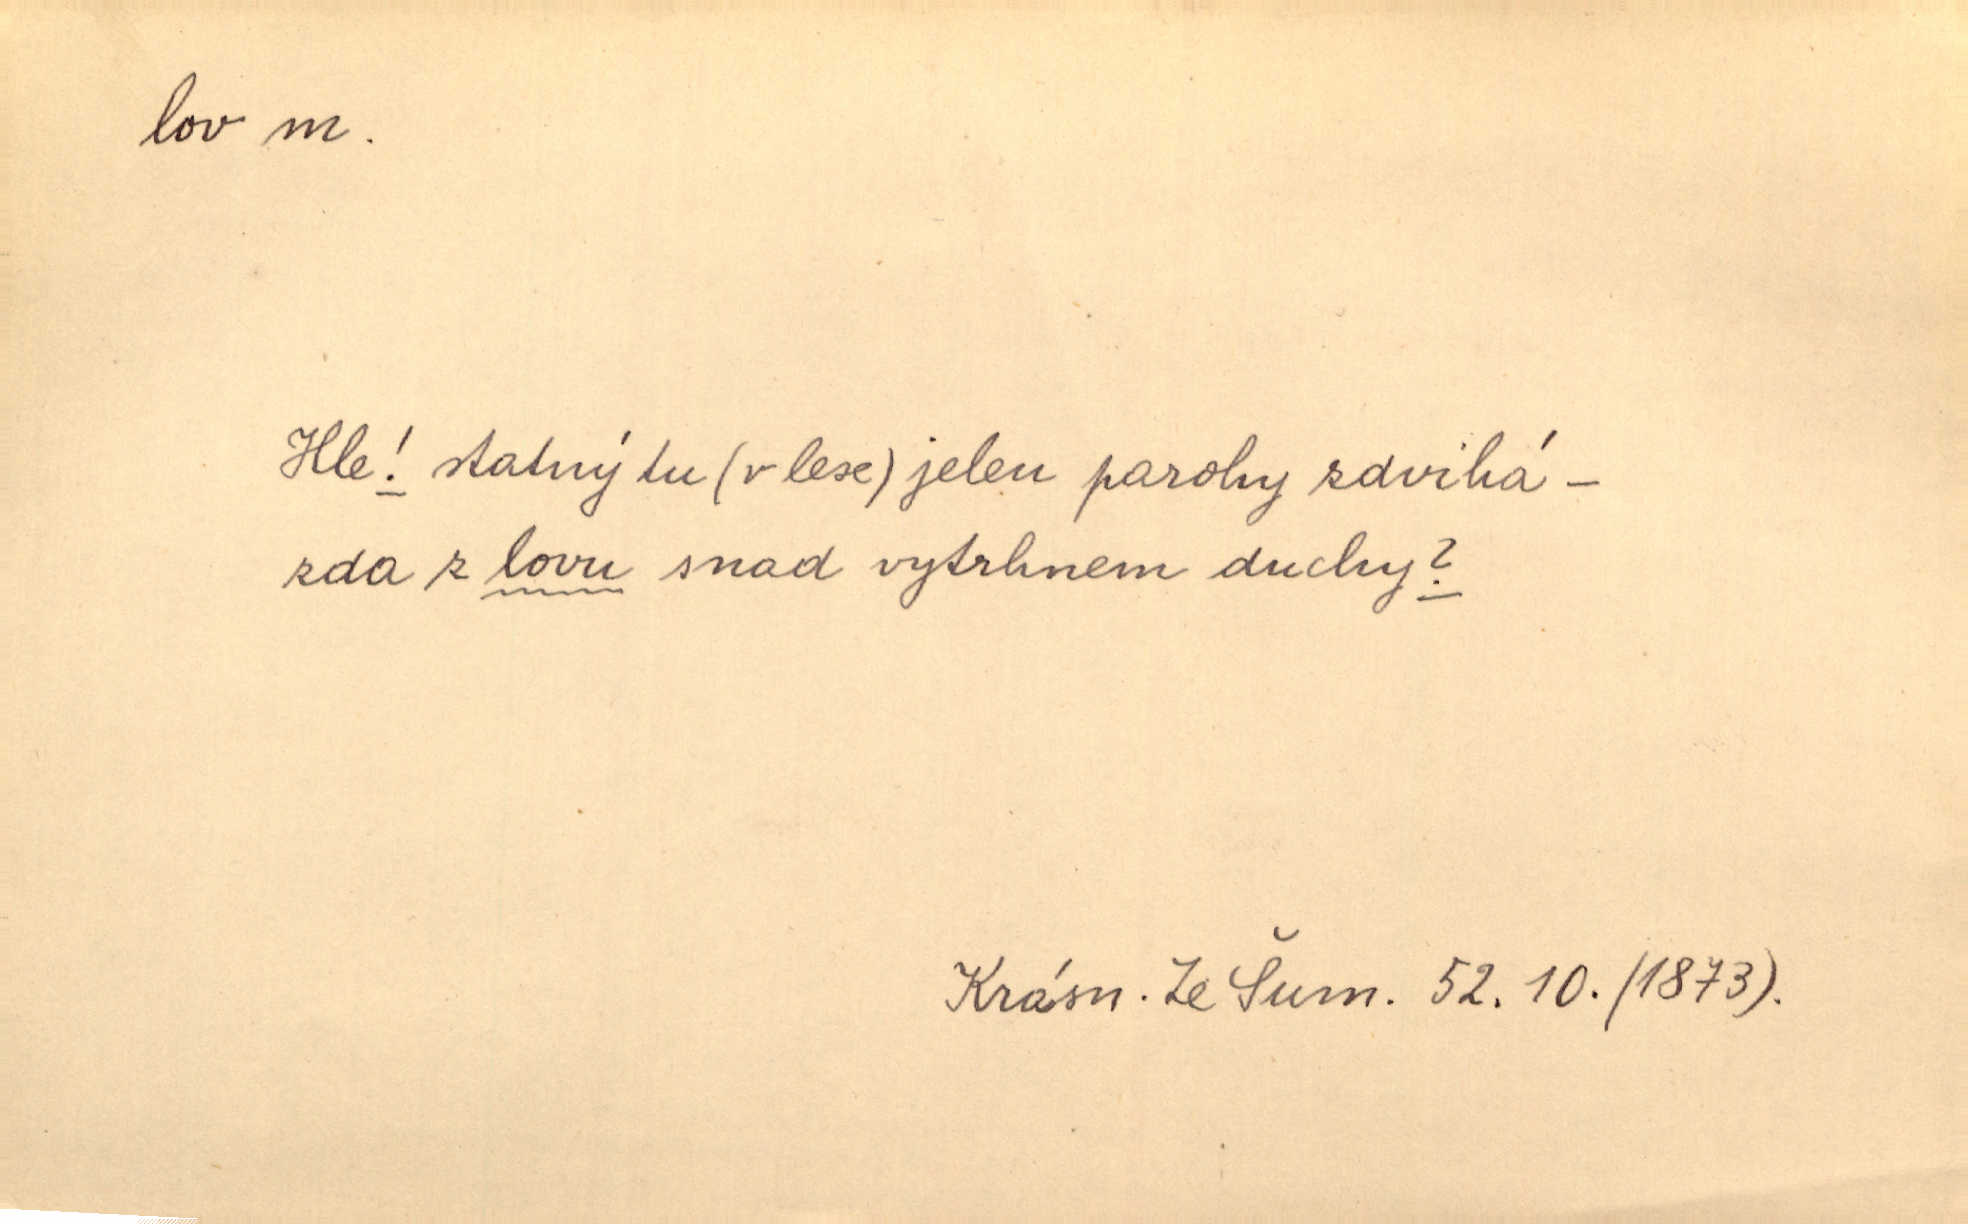 lov m.
Hle! statný tu (v lese) jelen parohy zdvihá –
zda z lovu snad vytrhnem duchy?
Krásn. Ze Šum. 52. 10. (1873).